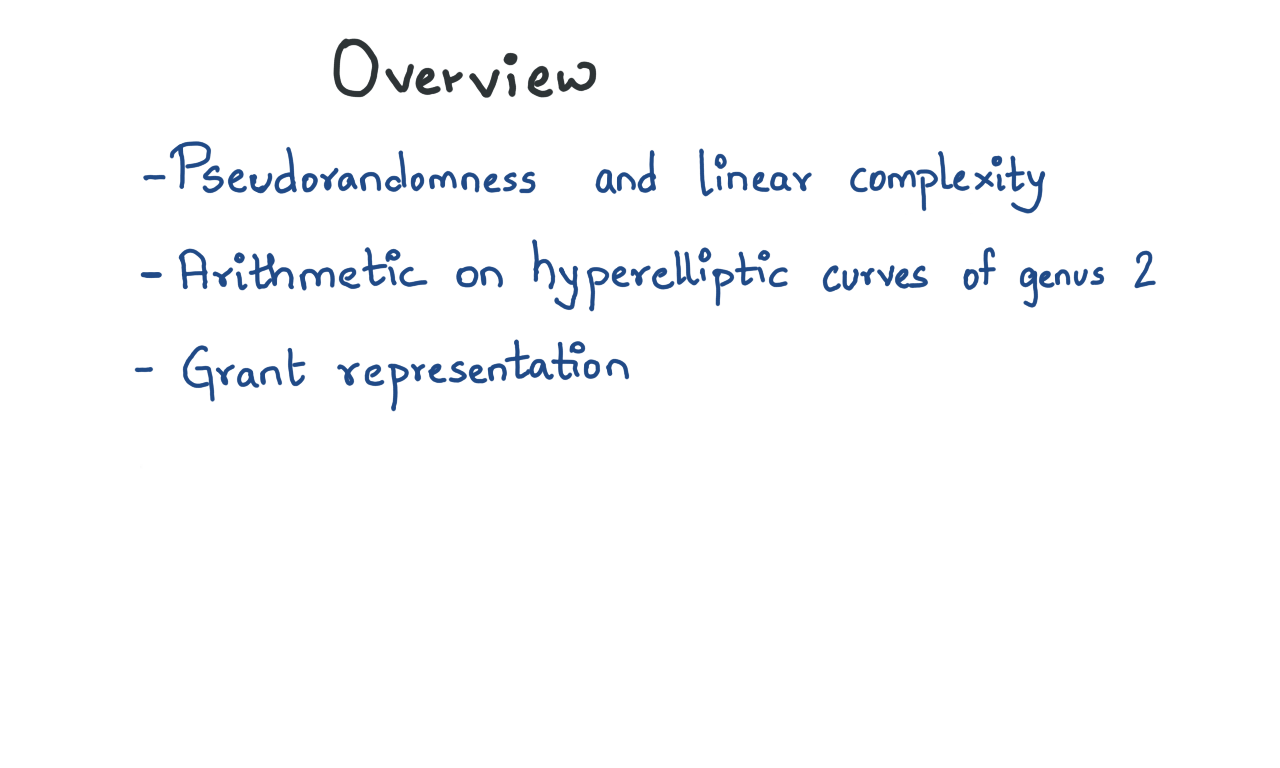 Overview
- Pseudorandomness and linear complexity
- Arithmetic on hyperelliptic curves of genus 2
- Grant representation